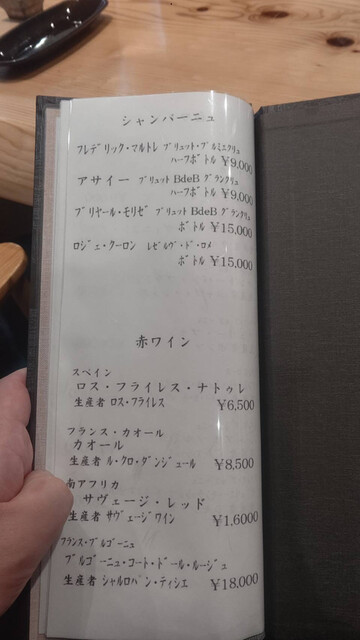 シャンパーニュ
フレデリック・マルトレ ブリュット・プルミエクリュ
ハーフボトル ¥9,000
アサイー ブリュット BdeB グランクリュ
ハーフボトル ¥9,000
ブリヤール・モリゼ ブリュット BdeB グランクリュ
ボトル ¥15,000
ロジェ・クーロン レゼルヴ・ド・ロメ
ボトル ¥15,000
赤ワイン
スペイン
ロス・フライレス・ナトゥレ
生産者 ロス・フライレス ¥6,500
フランス・カオール
カオール
生産者 ル・クロ・ダンジュール ¥8,500
南アフリカ
サヴェージ・レッド
生産者 サヴェージワイン ¥1,6000
フランス・ブルゴーニュ
ブルゴーニュ・コート・ドール・ルージュ
生産者 シャルロパン・ティシエ ¥18,000